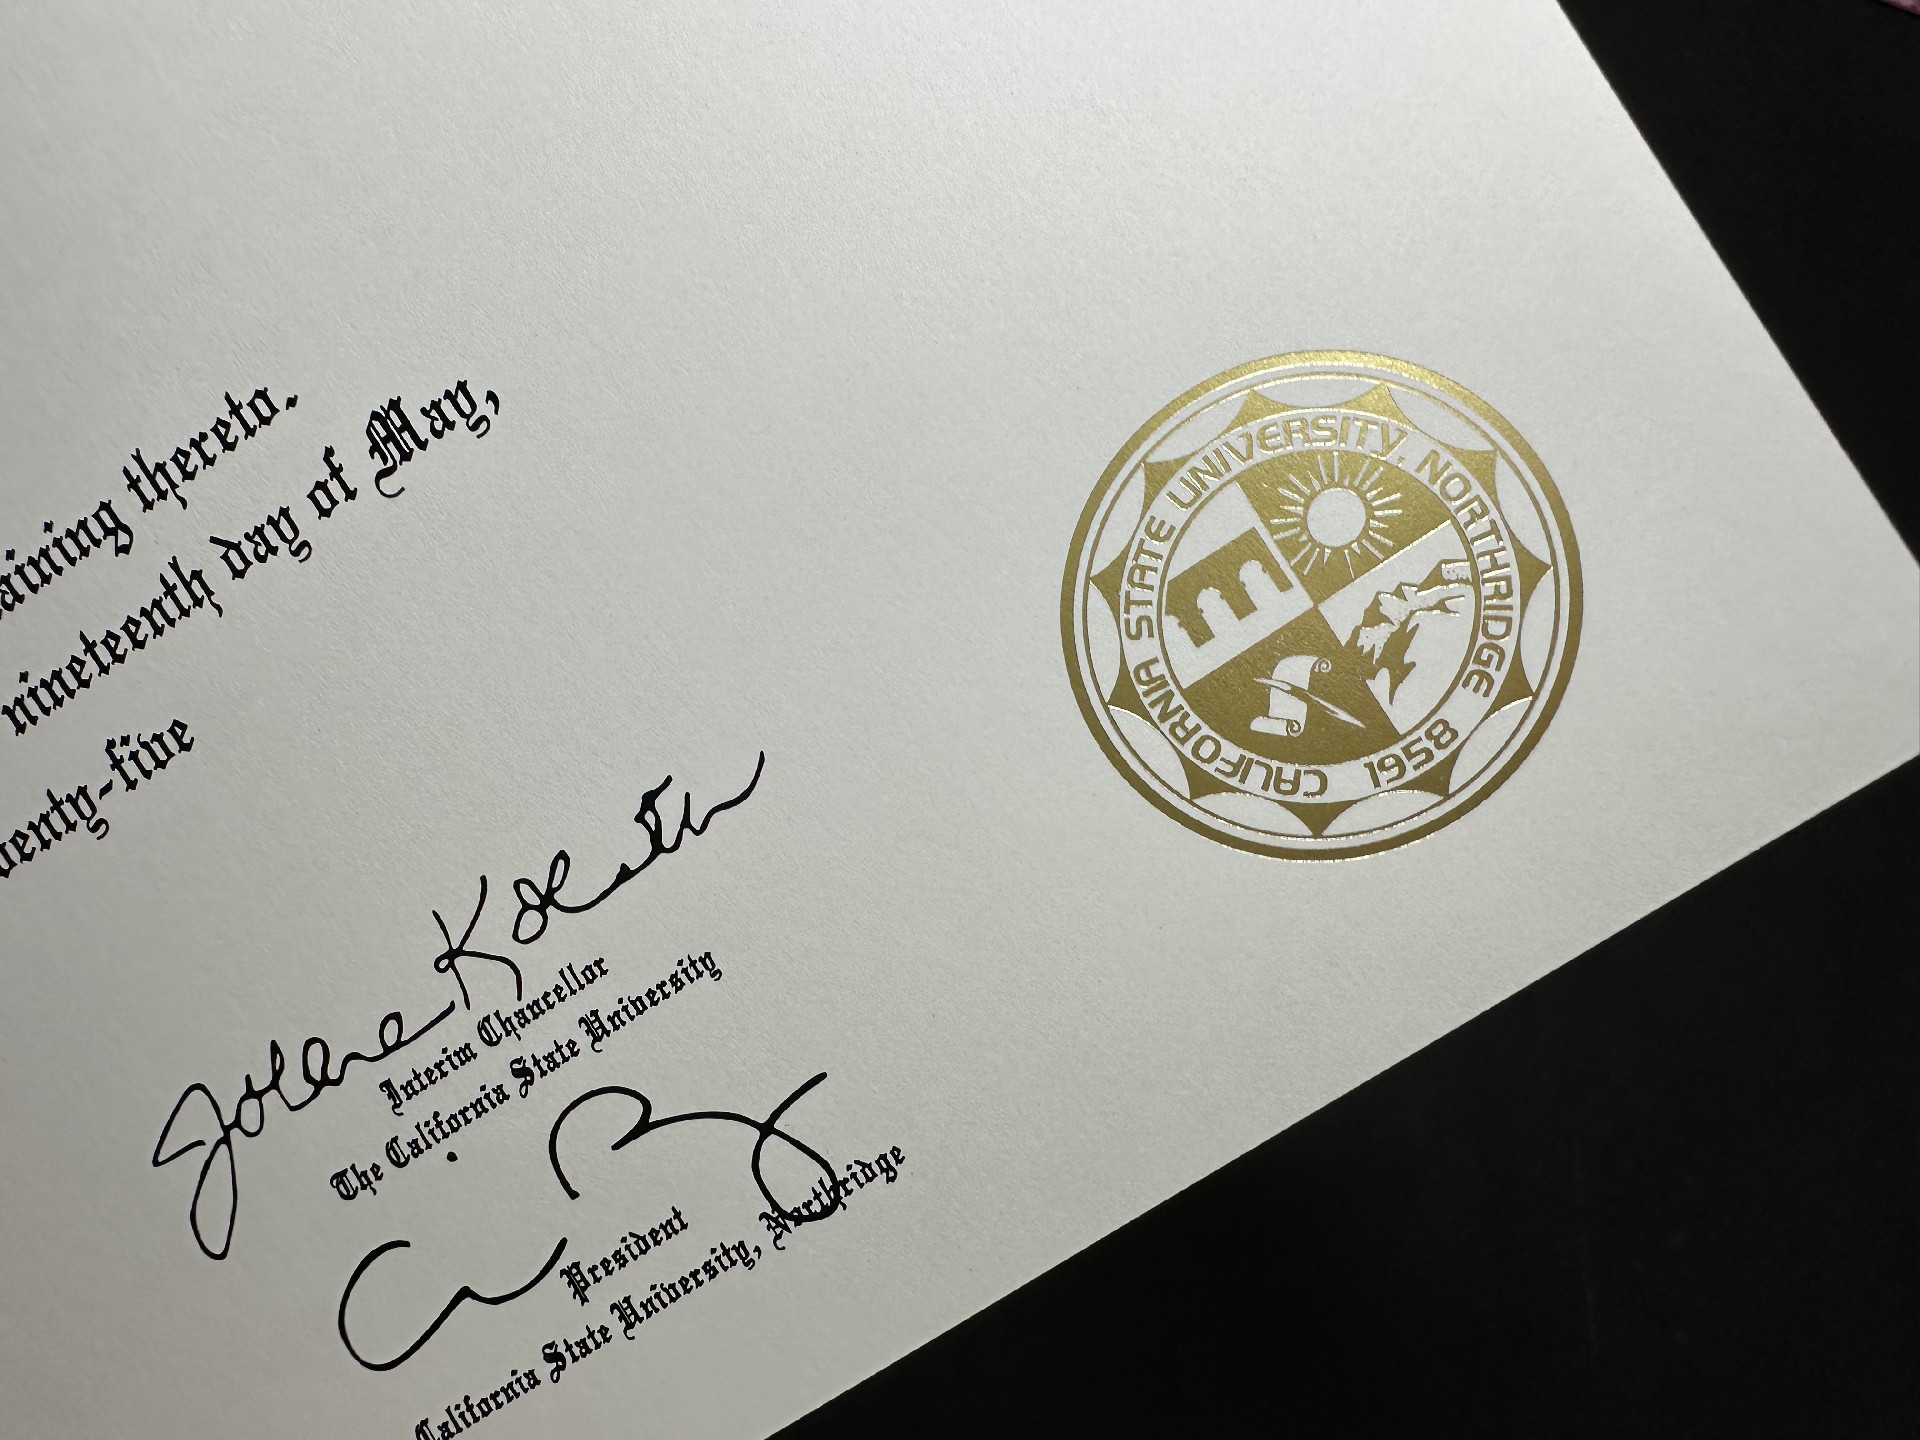 thereto.
nineteenth day of May,
Jolene Koester
Interim Chancellor
The California State University
President
California State University, Northridge
CALIFORNIA STATE UNIVERSITY, NORTHRIDGE 1958